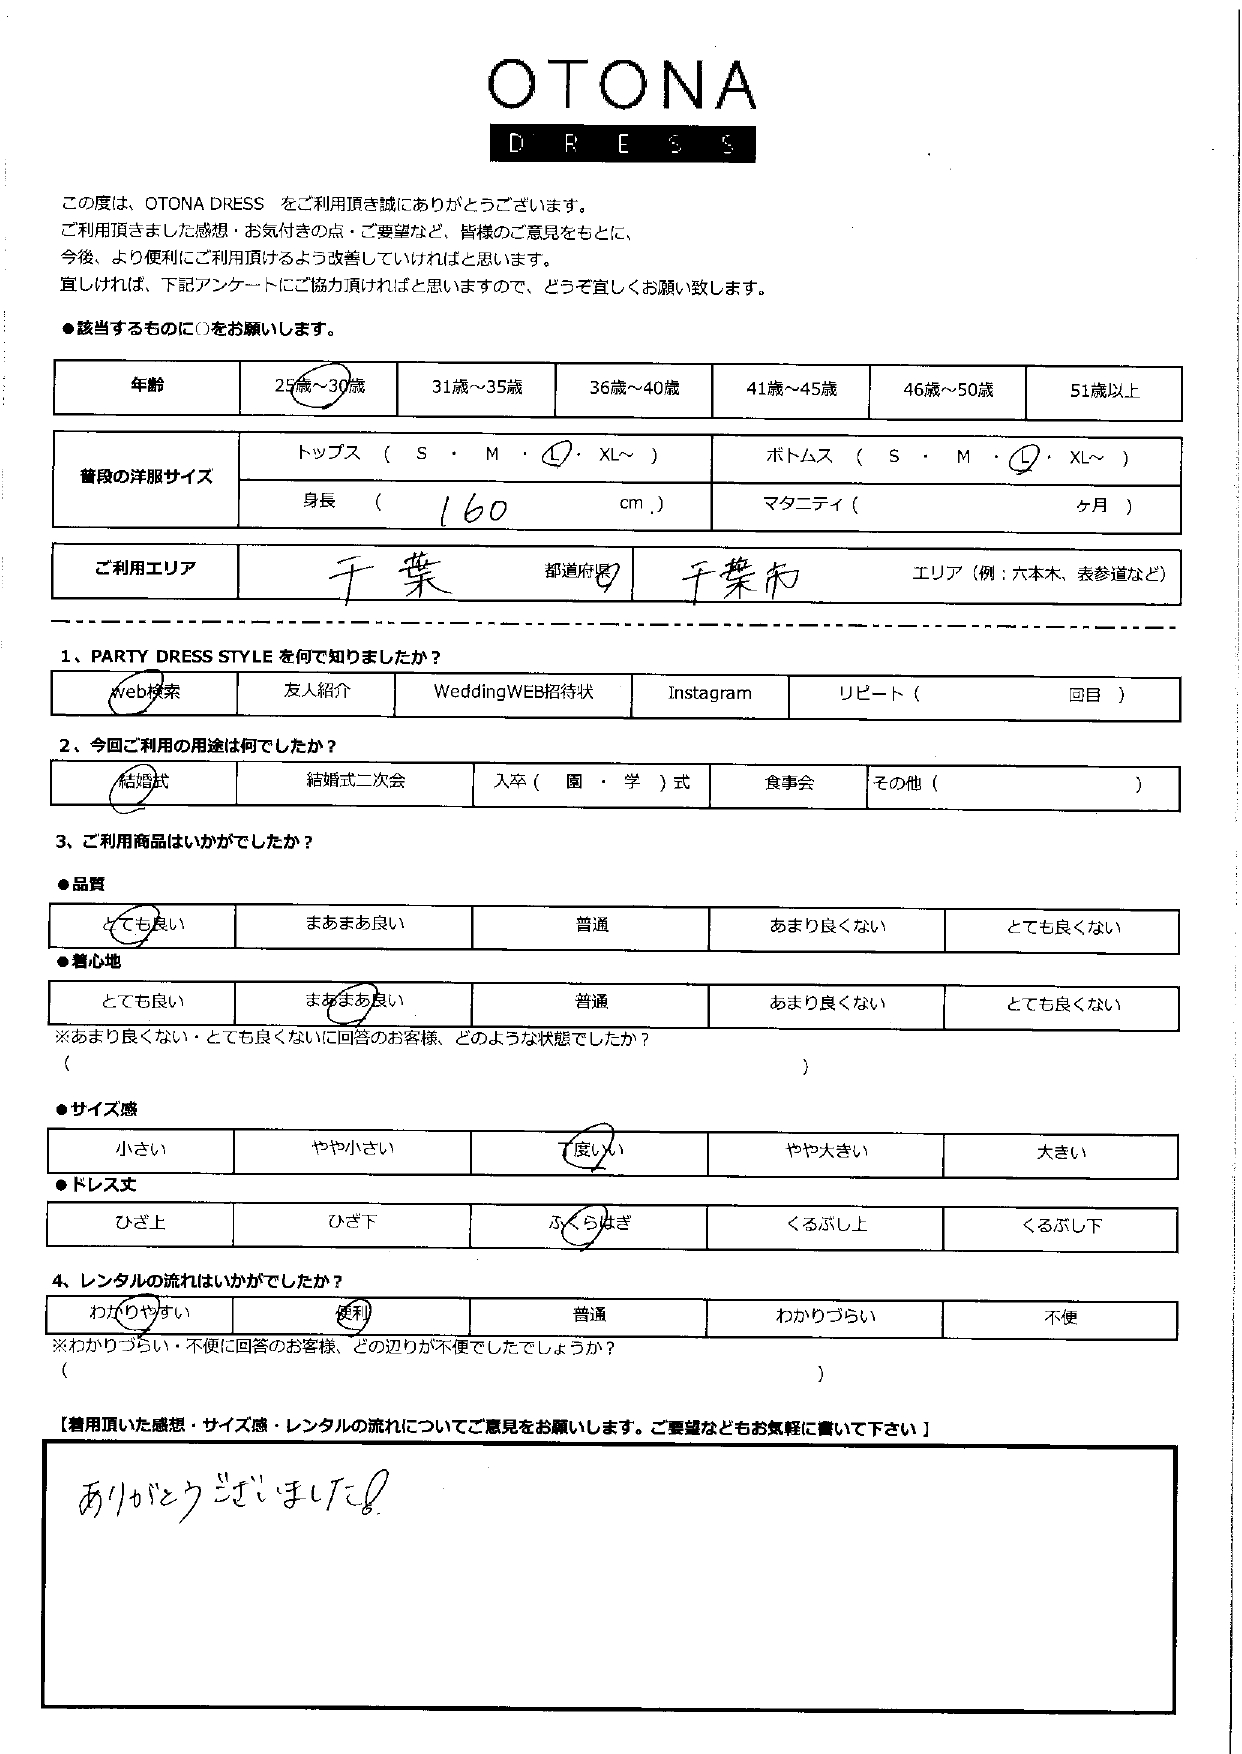 OTONA
DRESS
この度は、OTONA DRESS をご利用頂き誠にありがとうございます。
ご利用頂きました感想・お気付きの点・ご要望など、皆様のご意見をもとに、
今後、より便利にご利用頂けるよう改善していければと思います。
宜しければ、下記アンケートにご協力頂ければと思いますので、どうぞ宜しくお願い致します。
●該当するものに○をお願いします。
年齢 25歳～30歳 31歳～35歳 36歳～40歳 41歳～45歳 46歳～50歳 51歳以上
普段の洋服サイズ
トップス ( S ・ M ・ L ・ XL～ ) ボトムス ( S ・ M ・ L ・ XL～ )
身長 ( 160 cm ) マタニティ ( ケ月 )
ご利用エリア 千葉 都道府県 千葉市 エリア（例：六本木、表参道など）
1、PARTY DRESS STYLE を何で知りましたか？
web検索 友人紹介 WeddingWEB招待状 Instagram リピート ( 回目 )
2、今回ご利用の用途は何でしたか？
結婚式 結婚式二次会 入卒 ( 園 ・ 学 ) 式 食事会 その他 ( )
3、ご利用商品はいかがでしたか？
●品質
とても良い まあまあ良い 普通 あまり良くない とても良くない
●着心地
とても良い まあまあ良い 普通 あまり良くない とても良くない
※あまり良くない・とても良くないに回答のお客様、どのような状態でしたか？
( )
●サイズ感
小さい やや小さい 丁度いい やや大きい 大きい
●ドレス丈
ひざ上 ひざ下 ふくらはぎ くるぶし上 くるぶし下
4、レンタルの流れはいかがでしたか？
わかりやすい 便利 普通 わかりづらい 不便
※わかりづらい・不便に回答のお客様、どの辺りが不便でしたでしょうか？
( )
【着用頂いた感想・サイズ感・レンタルの流れについてご意見をお願いします。ご要望などもお気軽に書いて下さい 】
ありがとうございました！